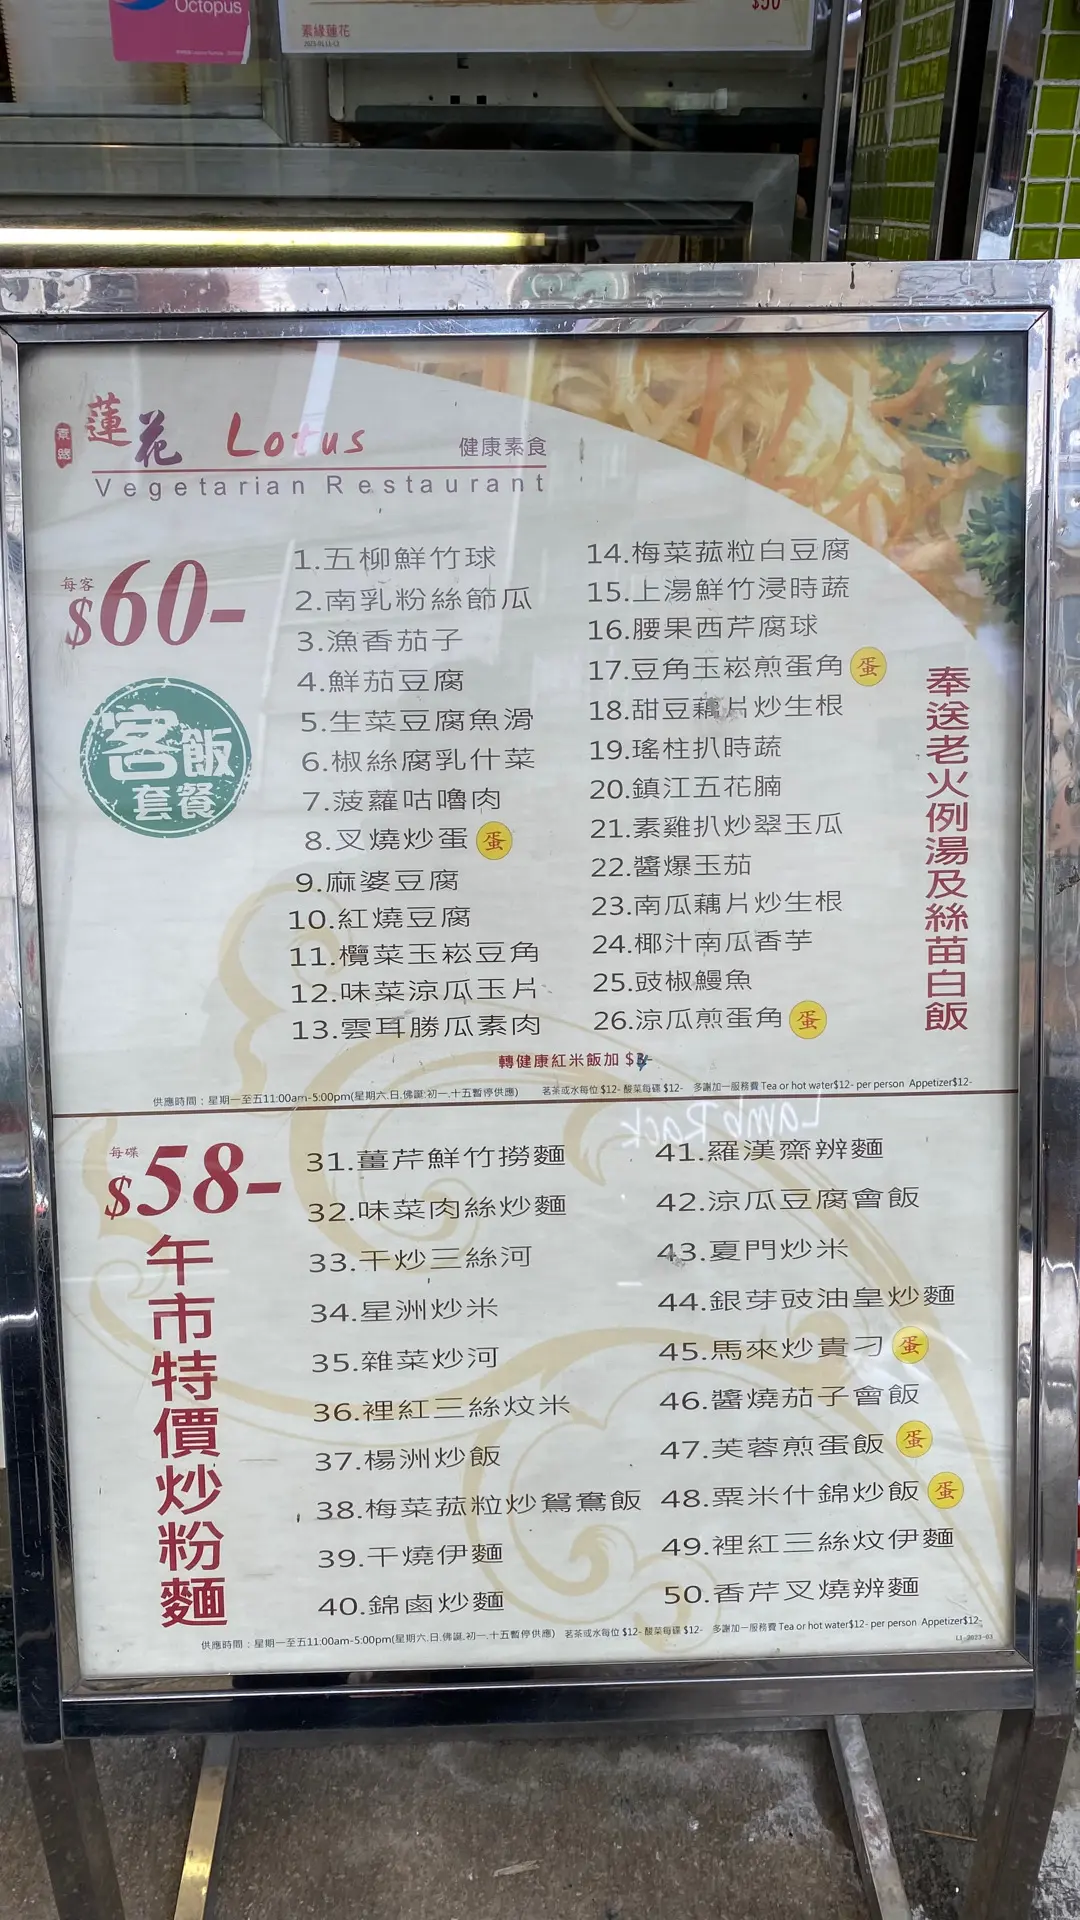 Octopus
$50
素緣蓮花
素緣 蓮花 Lotus 健康素食
Vegetarian Restaurant
每客
$60-
客飯
套餐
1.五柳鮮竹球
2.南乳粉絲節瓜
3.漁香茄子
4.鮮茄豆腐
5.生菜豆腐魚滑
6.椒絲腐乳什菜
7.菠蘿咕嚕肉
8.叉燒炒蛋 蛋
9.麻婆豆腐
10.紅燒豆腐
11.欖菜玉崧豆角
12.味菜涼瓜玉片
13.雲耳勝瓜素肉
14.梅菜菰粒白豆腐
15.上湯鮮竹浸時蔬
16.腰果西芹腐球
17.豆角玉崧煎蛋角 蛋
18.甜豆藕片炒生根
19.瑤柱扒時蔬
20.鎮江五花腩
21.素雞扒炒翠玉瓜
22.醬爆玉茄
23.南瓜藕片炒生根
24.椰汁南瓜香芋
25.豉椒鰻魚
26.涼瓜煎蛋角 蛋
奉送老火例湯及絲苗白飯
轉健康紅米飯加 $
供應時間：星期一至五11:00am-5:00pm(星期六.日.佛誕.初一.十五暫停供應) 茗茶或水每位 $12- 酸菜每碟 $12- 多謝加一服務費 Tea or hot water$12- per person Appetizer$12-
Lamb Rack
每碟
$58-
午市特價炒粉麵
31.薑芹鮮竹撈麵
32.味菜肉絲炒麵
33.干炒三絲河
34.星洲炒米
35.雜菜炒河
36.裡紅三絲炆米
37.楊洲炒飯
38.梅菜菰粒炒鴛鴦飯
39.干燒伊麵
40.錦鹵炒麵
41.羅漢齋辦麵
42.涼瓜豆腐會飯
43.夏門炒米
44.銀芽豉油皇炒麵
45.馬來炒貴刁 蛋
46.醬燒茄子會飯
47.芙蓉煎蛋飯 蛋
48.粟米什錦炒飯 蛋
49.裡紅三絲炆伊麵
50.香芹叉燒辦麵
供應時間：星期一至五11:00am-5:00pm(星期六.日.佛誕.初一.十五暫停供應) 茗茶或水每位 $12- 酸菜每碟 $12- 多謝加一服務費 Tea or hot water$12- per person Appetizer$12-
L1-2023-03